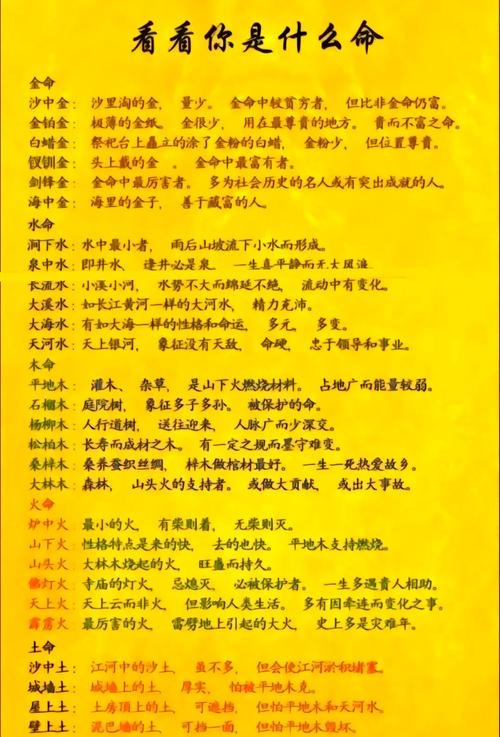 看看你是什么命
金命
沙中金： 沙里淘的金， 量少。 金命中较贫穷者， 但比非金命仍富。
金铂金： 极薄的金纸。 金很少， 用在最尊貴的地方。 貴而不富之命。
白蜡金： 祭祀台上矗立的涂了金粉的白蜡， 金粉少， 但位置尊貴。
钗钏金： 头上戴的金 。 金命中最富有者。
剑锋金： 金命中最厉害者。 多为社会历史的名人或有突出成就的人。
海中金： 海里的金子， 善于藏富的人。
水命
涧下水：水中最小者， 雨后山坡流下小水而形成。
泉中水：即井水， 逢井必是泉， 一生喜平静而无大风浪
长流水：小溪小河， 水势不大而绵延不绝， 流动中有变化。
大溪水：如长江黄河一样的大河水， 精力充沛。
大海水：有如大海一样的性格和命运， 多元， 多变。
天河水：天上银河， 象征没有天敌， 命硬， 忠于领导和事业。
木命
平地木： 灌木、 杂草， 是山下火燃烧材料。 占地广而能量较弱。
石榴木：庭院树， 象征多子多孙。 被保护的命。
杨柳木：人行道树， 送往迎来， 人脉广而少深交。
松柏木：长寿而成材之木。 有一定之规而墨守难变。
桑梓木：桑养蚕织丝绸， 梓木做棺材最好。 一生一死热爱故乡。
大林木：森林， 山头火的支持者。 或做大贡献， 或出大事故。
火命
炉中火：最小的火， 有柴则着， 无柴则灭。
山下火：性格特点是来的快， 去的也快。 平地木支持燃烧。
山头火：大林木烧起的火， 旺盛而持久。
佛灯火：寺庙的灯火， 忌熄灭， 必被保护者。 一生多遇貴人相助。
天上火：天上云而非火， 但影响人类生活。 多有因牵连而变化之事。
霹雳火：最厉害的火， 雷劈地上引起的大火， 史上多是灾难年。
土命
沙中土：江河中的沙土， 虽不多， 但会使江河淤积堵塞。
城墙土：城墙上的土， 厚实， 怕被平地木克。
屋上土：土房顶上的土， 可遮挡， 但怕平地木和天河水。
壁上土：泥巴墙的土， 可挡一面， 但怕平地木毁坏。